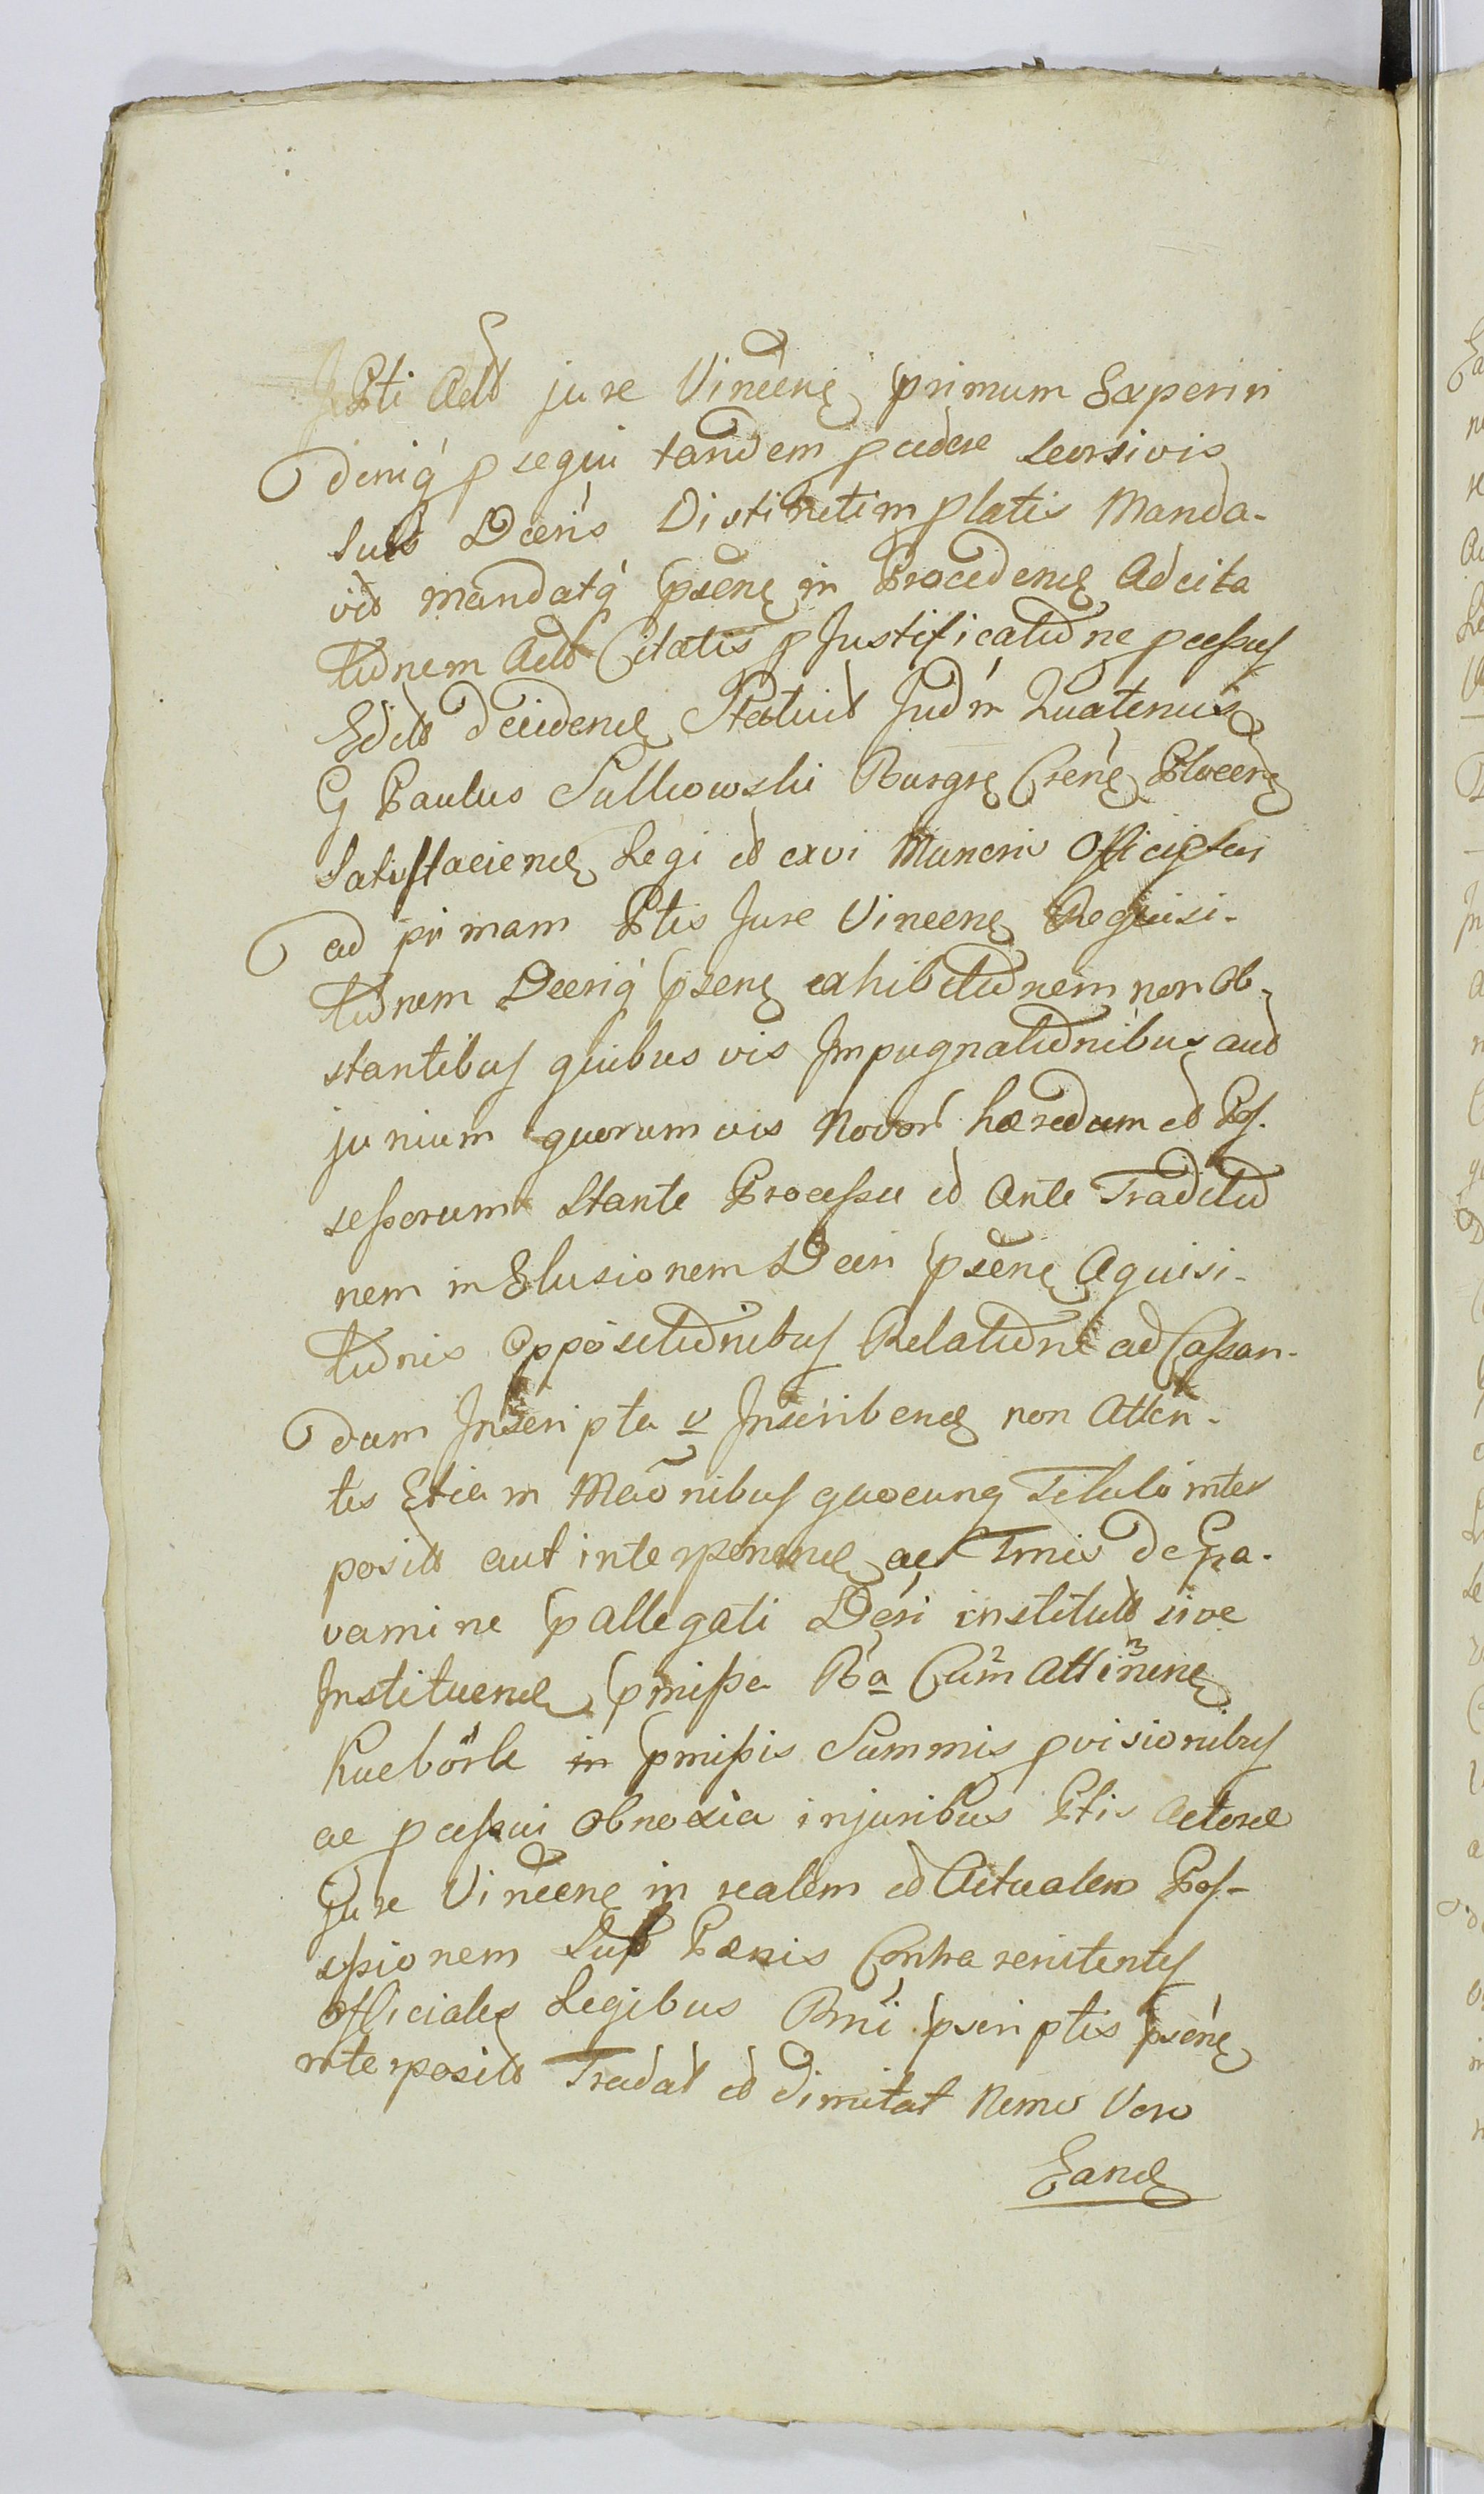 Pti Actt jure Vincenę primum Experiri
deniq́ psequi tandem pcedere seorsivis
suis Dcéris Distinctim platis Manda-
vit mandatq́ psenę in Procedenę Adcita
tiōnem Actt Citatis p Justificatiōne pcessus
Edito decidenę Statuit Judm Quatenus
G Paulus Sulkowski Burgrę Crenę Plocenę
Satisfacienę Legi et exvi Muneris Officij sui
ad primam Ptis Jure Vincenę Requisi-
tiōnem Decriq́ psenę exhibitiōnem non Ob-
stantibus quibus vis Impugnatiōnibus aut
junium quorumvis Novor hæredum et Pos-
sessorum Stante Processu et Ante Traditiō
nem in Elusionem Decri psenę Aquisi-
tiōnis oppositiōnibus Relatiōne ad Cassan-
dum Inscripta v Inscribenę non Atten-
tis Etiam Maōnibus quocunq Titulo inter
posito aut interponenę ac Tmis de Gra-
vamine pallegati Decri institut sive
Instituenę pmissa Ba Cum Attinenę
Kuebórk in pmissis Summis pvisionibus
ac pcessui Obnoxia injuribus Ptis Actorę
Jure Vincenę in realem et Actualem Pos-
essionem Sub Pænis Contra renitentes
Officiales Legibus Pmi pscriptis psenę
interposito Tradat et dimitat Nemo Vero
Eanę